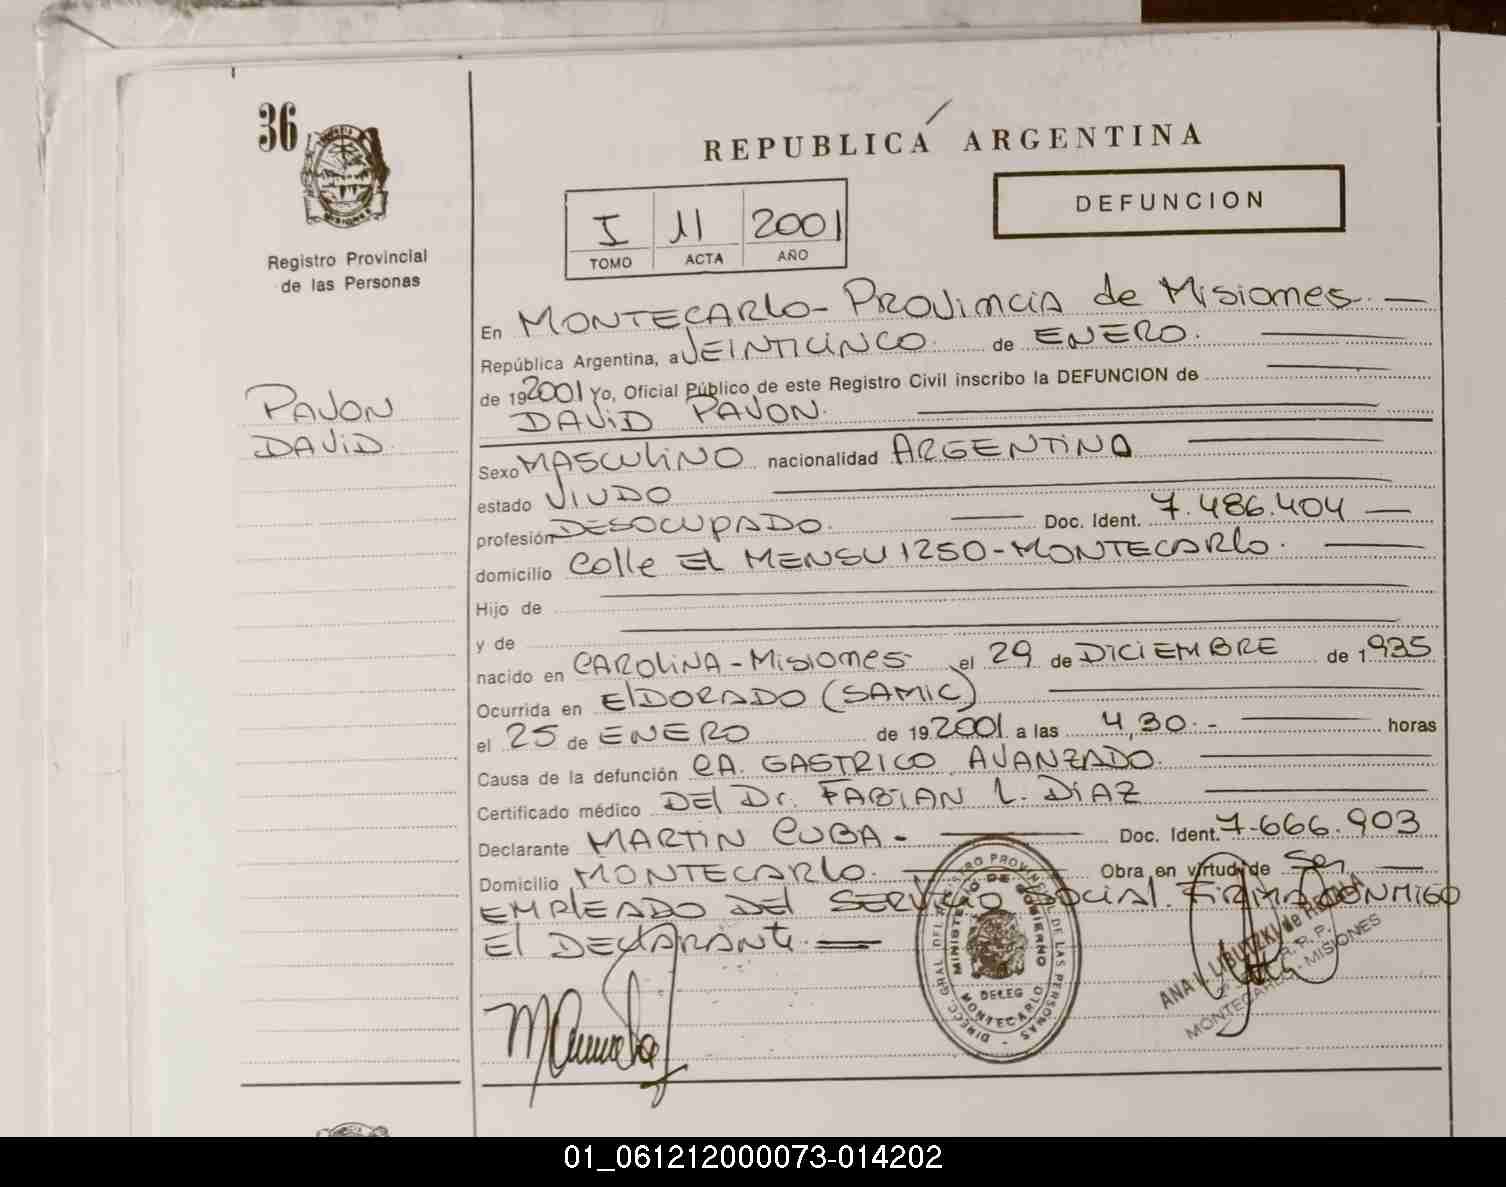 36
Registro Provincial
de las Personas
REPUBLICA ARGENTINA
DEFUNCION
I 11 2001
TOMO ACTA AÑO
PAVON
DAVID
En MONTECARLO - PROVINCIA de MISIONES
República Argentina, a VEINTICINCO de ENERO
de 19 2001 Yo, Oficial Público de este Registro Civil inscribo la DEFUNCION de
DAVID PAVON
Sexo MASCULINO nacionalidad ARGENTINA
estado VIUDO
profesión DESOCUPADO Doc. Ident. 7.486.404
domicilio Calle EL MENSU 1250 - MONTECARLO
Hijo de
y de
nacido en CAROLINA - MISIONES el 29 de DICIEMBRE de 1935
Ocurrida en ELDORADO (SAMIC)
el 25 de ENERO de 19 2001 a las 4,30 horas
Causa de la defunción CA. GASTRICO AVANZADO
Certificado médico DEL Dr. FABIAN L. DIAZ
Declarante MARTIN CUBA Doc. Ident. 7.666.903
Domicilio MONTECARLO Obra en virtud de Ser
EMPLEADO DEL SERVICIO SOCIAL. FIRMA CONMIGO
El DECLARANTE
DIRECC. GRAL DEL REGISTRO PROVINCIAL DE LAS PERSONAS
MINISTERIO DE GOBIERNO
DELEG
MONTECARLO
MONTECARLO - MISIONES
01_061212000073-014202